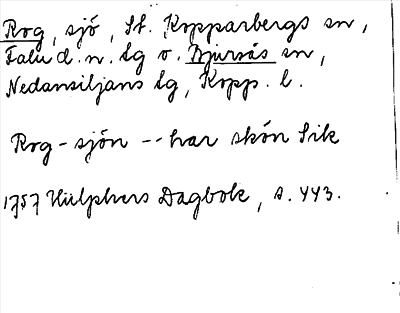 Rog, sjö, St. Kopparbergs sn,
Falu d. n. tg o. Bjursås sn,
Nedansiljans tg, Kopp. l.
Rog-sjön -- har skön Sik
1757 Hülphers Dagbok, s. 443.